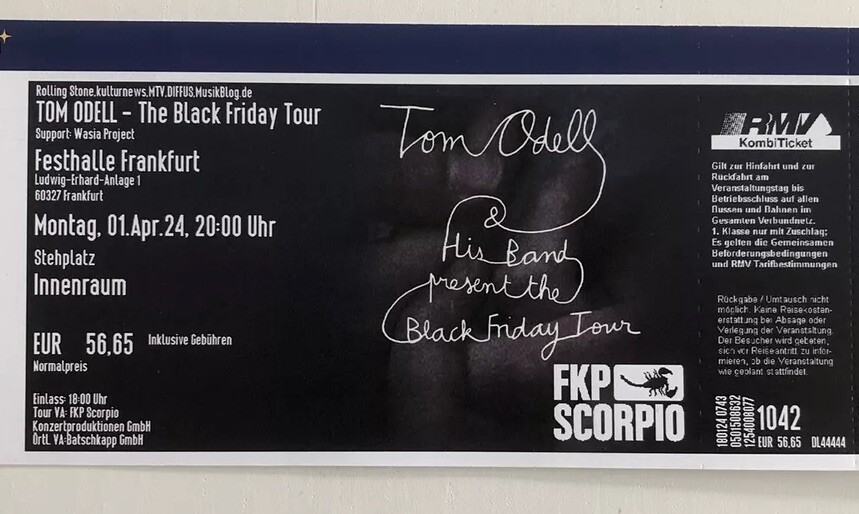 Rolling Stone,kulturnews,MTV,DIFFUS,MusikBlog.de
TOM ODELL - The Black Friday Tour
Support: Wasia Project
Festhalle Frankfurt
Ludwig-Erhard-Anlage 1
60327 Frankfurt
Montag, 01.Apr.24, 20:00 Uhr
Stehplatz
Innenraum
EUR 56,65 Inklusive Gebühren
Normalpreis
Einlass: 18:00 Uhr
Tour VA: FKP Scorpio
Konzertproduktionen GmbH
Örtl. VA:Batschkapp GmbH
Tom Odell
&
His Band
present the
Black Friday Tour
FKP
SCORPIO
RMV
KombiTicket
Gilt zur Hinfahrt und zur
Rückfahrt am
Veranstaltungstag bis
Betriebsschluss auf allen
Bussen und Bahnen im
Gesamten Verbundnetz.
1. Klasse nur mit Zuschlag;
Es gelten die Gemeinsamen
Beförderungsbedingungen
und RMV Tarifbestimmungen
Rückgabe / Umtausch nicht
möglich. Keine Reisekosten-
erstattung bei Absage oder
Verlegung der Veranstaltung.
Der Besucher wird gebeten,
sich vor Reiseantritt zu infor-
mieren, ob die Veranstaltung
wie geplant stattfindet.
180124 0743
0501508632
1254008077
1042
EUR 56,65 DL44444